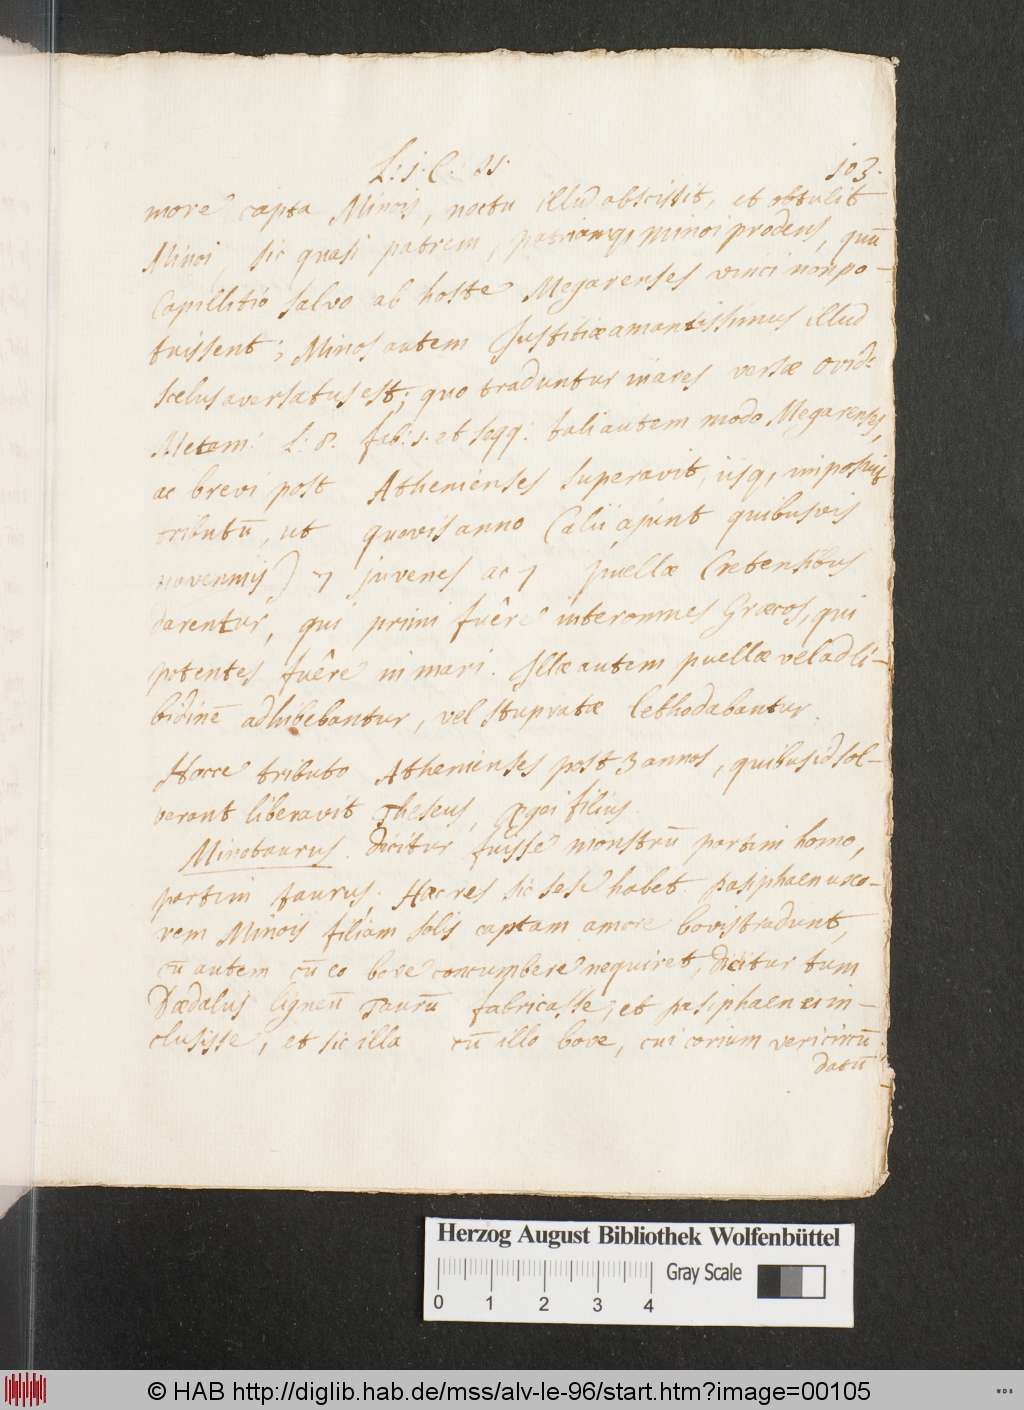 L: 1. C. 21. 103.
more capta Minois, noctu illud abscissit, et obtulit
Minoi, sic quasi patrem, patriamq, minoi prodens, quū
Capillitio salvo ab hoste Megarenses vinci non po-
tuissent; Minos autem Justitiæ amantissimus illud
scelus aversatus est; quo traduntur in aves versæ Ovid:
Metam: L: 8. fab: 1. et seqq: tali autem modo Megarenses,
ac brevi post Athenienses superavit, iisq, imposuit
tributū, ut quovis anno (alii ajunt quibusvis
novenniis) 7 juvenes ac 7 puellæ Cretensibus
darentur, qui primi fuêre inter omnes Græcos, qui
potentes fuêre in mari. Illæ autem puellæ vel ad li-
bidinē adhibebantur, vel stupratæ letho dabantur.
Hocce tributo Athenienses post 3 annos, quibus id sol-
verant liberavit Theseus, Ægei filius.
Minotaurus. dicitur fuisse monstrū partim homo,
partim taurus. Hæc res sic sese habet. pasiphaen uxo-
rem Minois filiam solis captam amore bovis tradunt,
cū autem cū eo bove concumbere nequiret, dicitur tum
Dædalus ligneū Taurū fabricasse; et pasiphaen ei in-
clusisse, et sic illa cū illo bove, cui corium veri circū
datū
Herzog August Bibliothek Wolfenbüttel
Gray Scale
0 1 2 3 4
© HAB http://diglib.hab.de/mss/alv-le-96/start.htm?image=00105